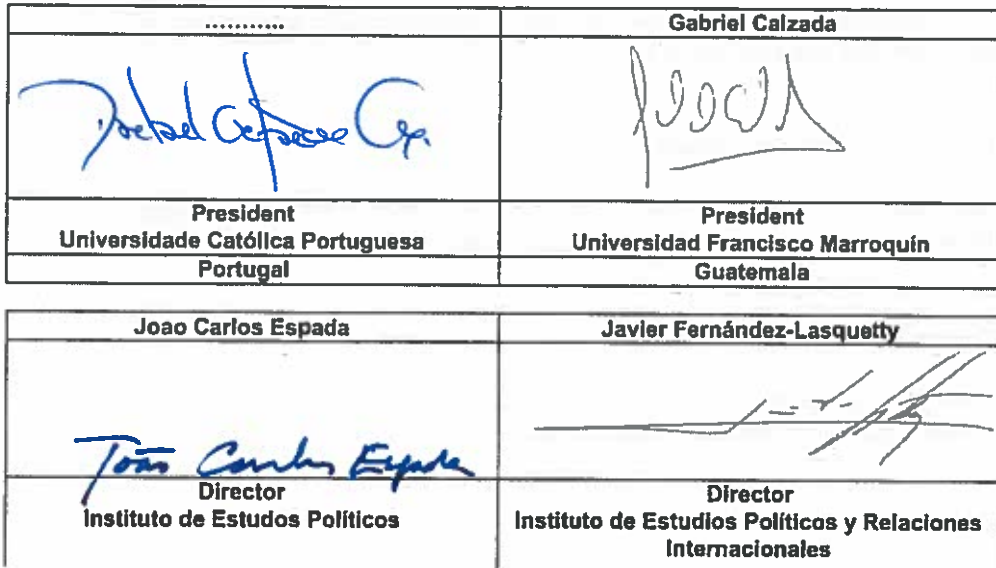 ...........
Gabriel Calzada
President
Universidade Católica Portuguesa
President
Universidad Francisco Marroquín
Portugal
Guatemala
Joao Carlos Espada
Javier Fernández-Lasquetty
João Carlos Espada
Director
Instituto de Estudos Políticos
Director
Instituto de Estudios Políticos y Relaciones
Internacionales